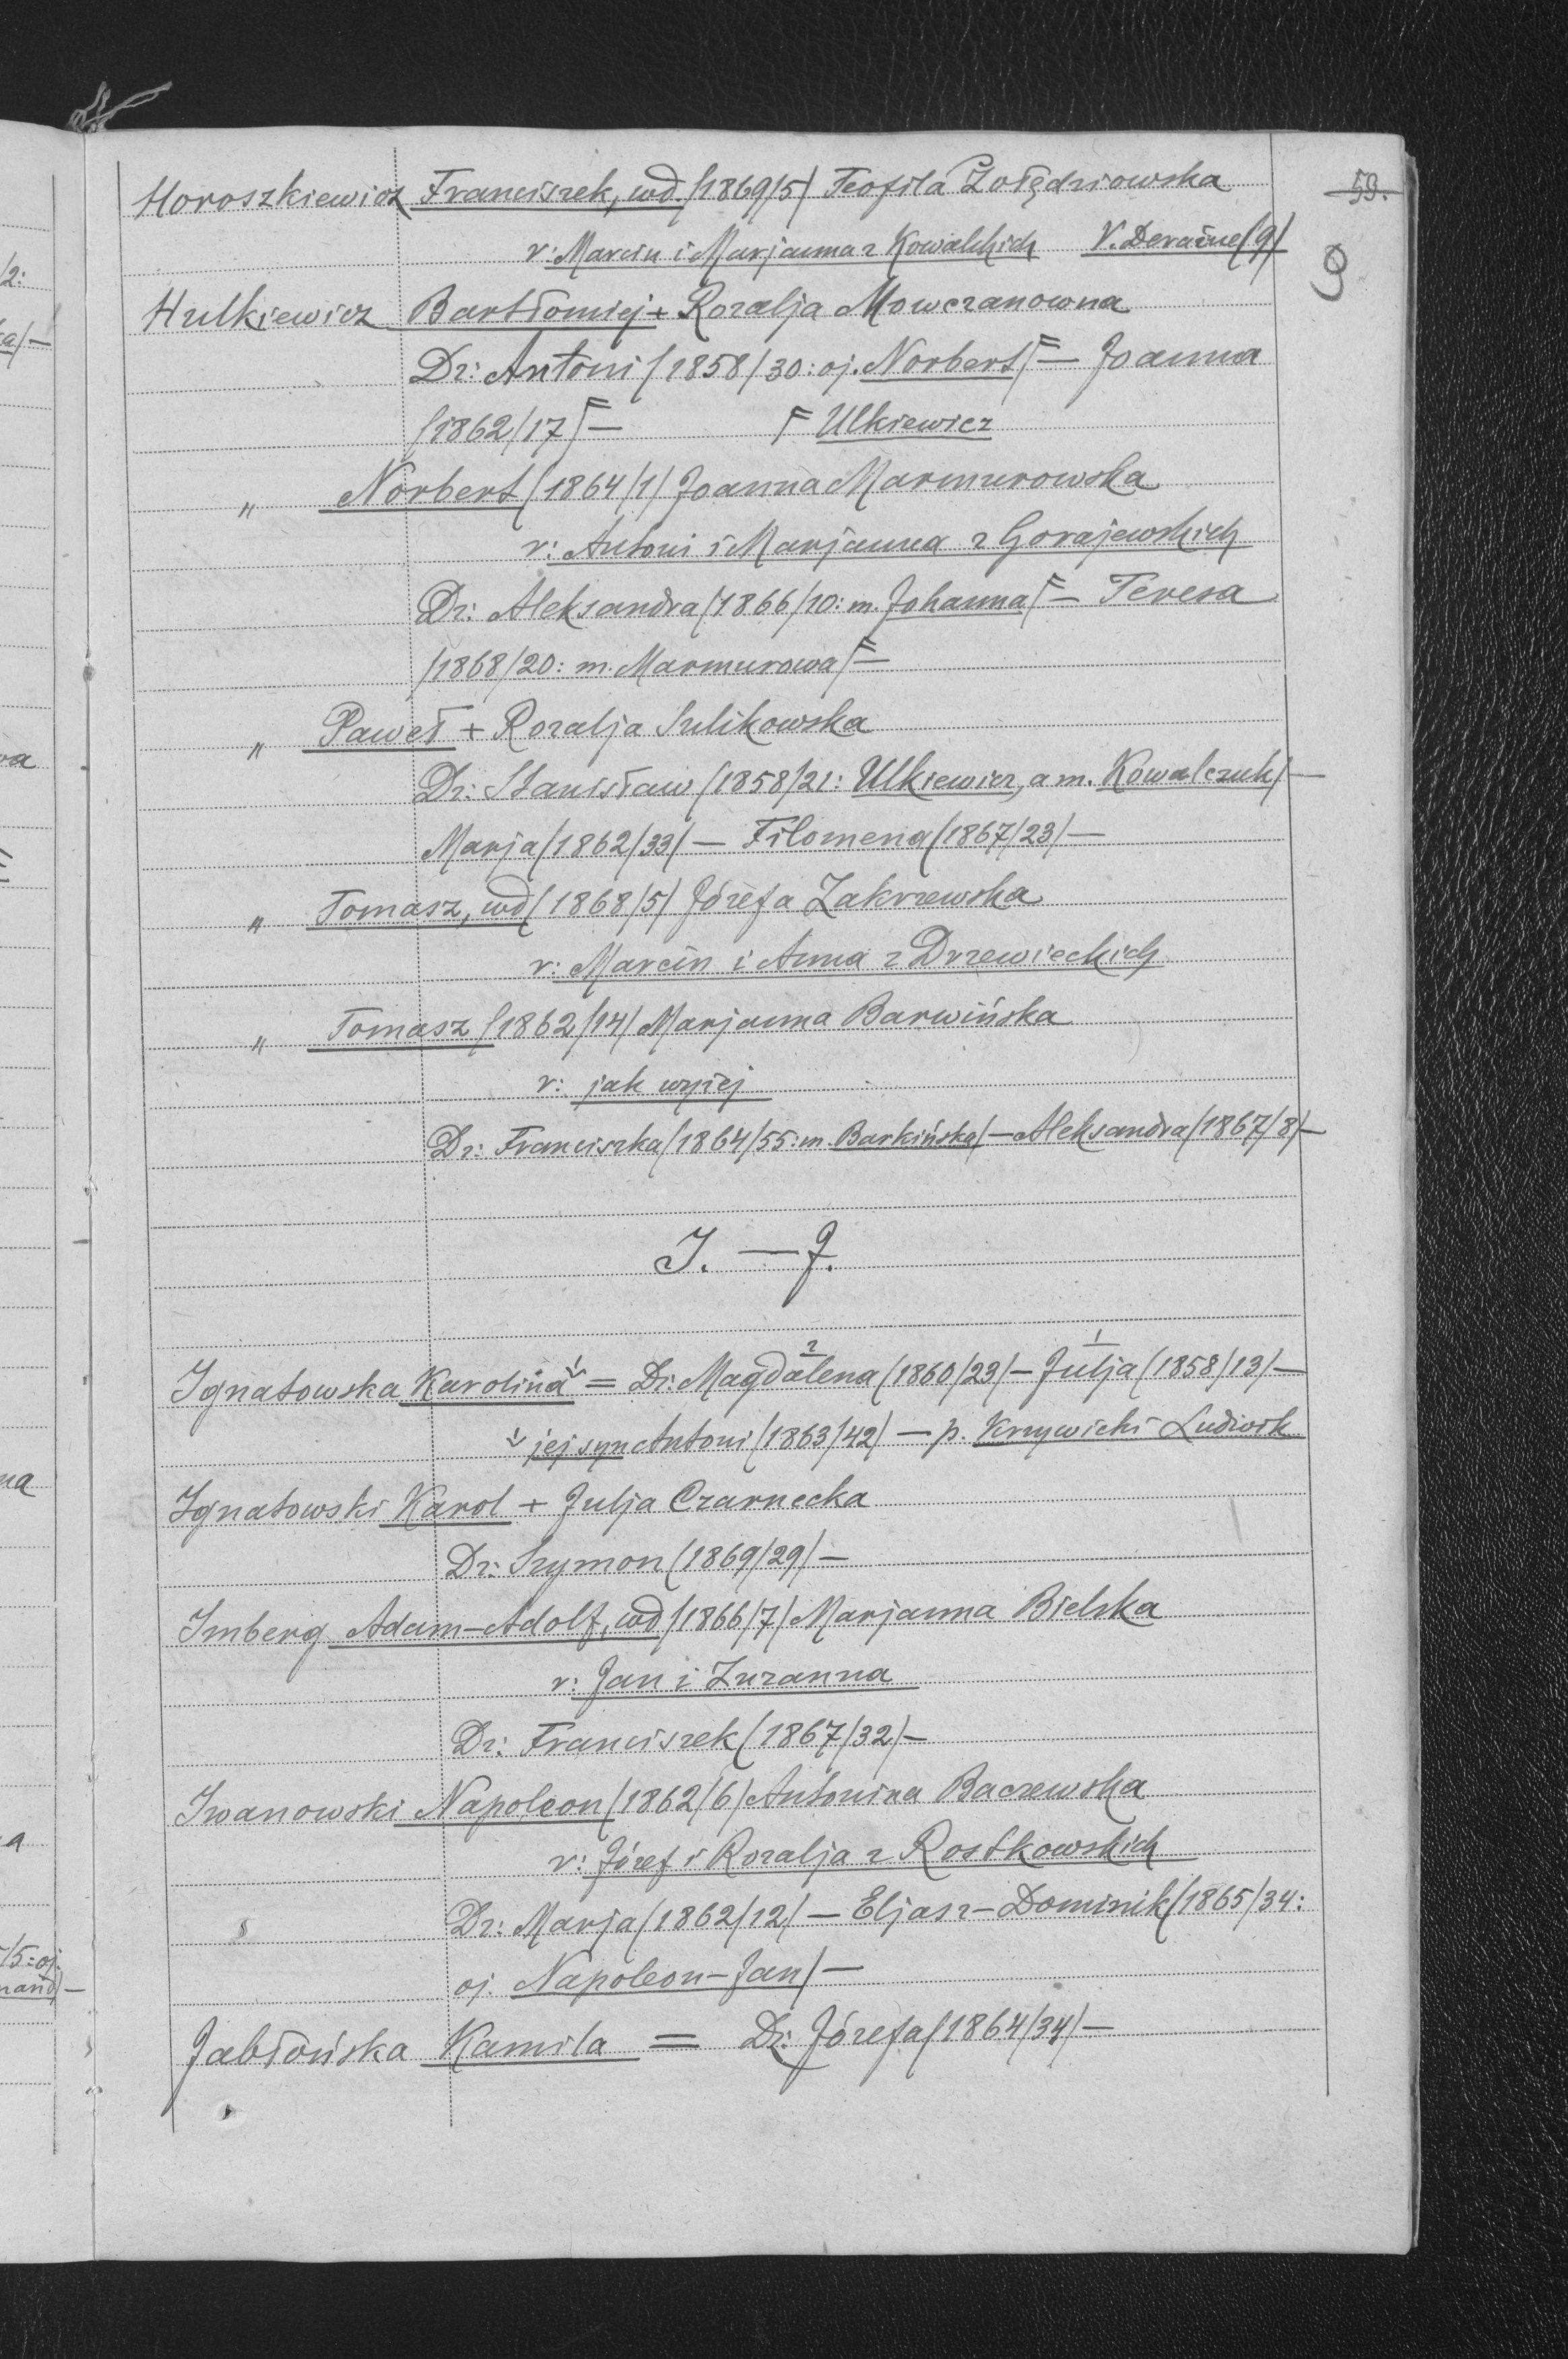 59.
9
Horoszkiewicz Franciszek, wd. /1869/5/ Teofila Żołędziowska
r: Marcin i Marjanna z Kowalskich V. Deraźne /9/
Hulkiewicz Bartłomiej + Rozalja Mowczanowna
Dz: Antoni /1858/30: oj. Norbert/ — Joanna
/1862/17/ — Ulkiewicz
" Norbert /1864/1/ Joanna Marmurowska
r: Antoni i Marjanna z Gorajewskich
Dz: Aleksandra /1866/10: m. Johanna/ — Teresa
/1868/20: m. Marmurowa/ —
" Paweł + Rozalja Sulikowska
Dz: Stanisław /1858/21: Ulkiewicz, a m. Kowalczuk/ —
Marja /1862/33/ — Filomena /1867/23/ —
" Tomasz, wd /1868/5/ Józefa Zakrzewska
r: Marcin i Anna z Drzewieckich
" Tomasz /1862/14/ Marjanna Barwińska
r: jak wyżej
Dz: Franciszka /1864/55: m. Barkińska/ — Aleksandra /1867/8/ —
I. — J.
Ignatowska Karolina = Dz: Magdalena /1860/23/ — Julja /1858/13/ —
jej syn Antoni /1863/42/ — p. Krzywicki Ludwik
Ignatowski Karol + Julja Czarnecka
Dz: Szymon /1869/29/ —
Imberg Adam-Adolf, wd /1866/7/ Marjanna Bielska
r: Jan i Zuzanna
Dz: Franciszek /1867/32/ —
Iwanowski Napoleon /1862/6/ Antonina Baczewska
r: Józef i Rozalja z Rostkowskich
Dz: Marja /1862/12/ — Eljasz-Dominik /1865/34:
oj. Napoleon-Jan/ —
Jabłońska Kamila = Dz: Józefa /1864/34/ —